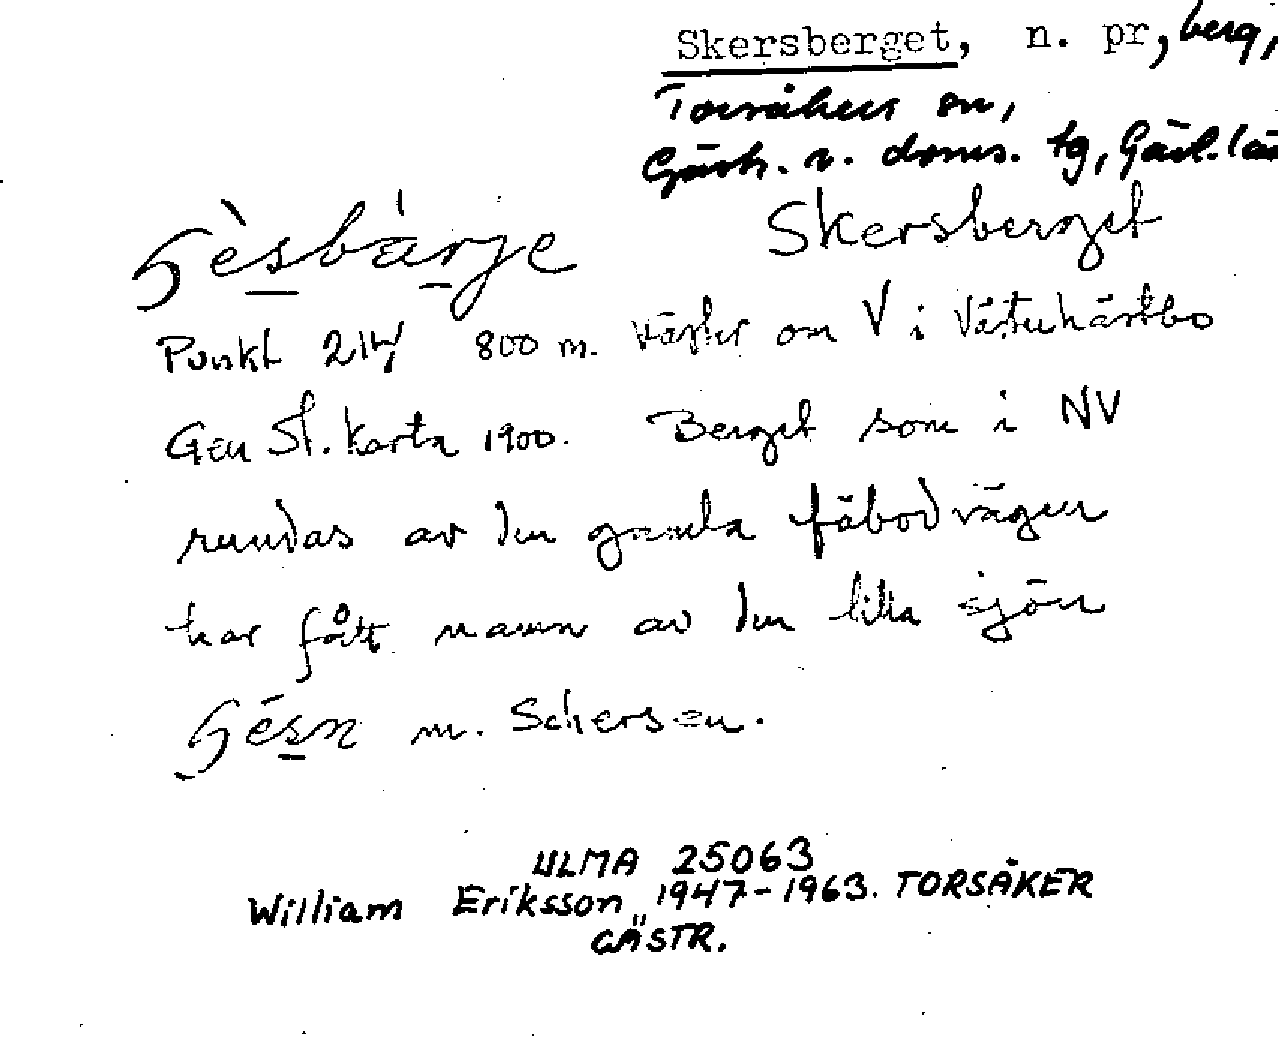 Skersberget, n. pr, berg,
Torsåkers sn,
Gästr. v. doms. tg, Gävl. lä
Skersberget
Punkt 214 800 m. väster om V i Västerhästbo
Gen St. Karta 1900. Berget som i NV
rundas av den gamla fäbodvägen
har fått namn av den lilla sjön
m. Schersen.
ULMA 25063
William Eriksson 1947-1963. TORSÅKER
GÄSTR.